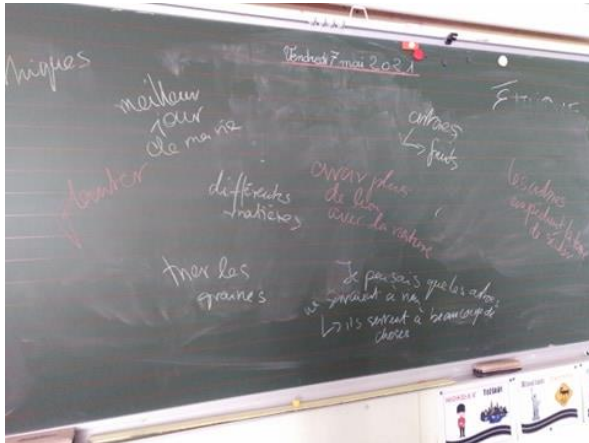 Vendredi 7 mai 2021
meilleur
jour
de ma vie
arbres
↳ fruits
planter
différentes
matières
avoir plus
de lien
avec la nature
les arbres
trier les
graines
Je pensais que les arbres
ne servaient à rien
↳ ils servent à beaucoup de
choses